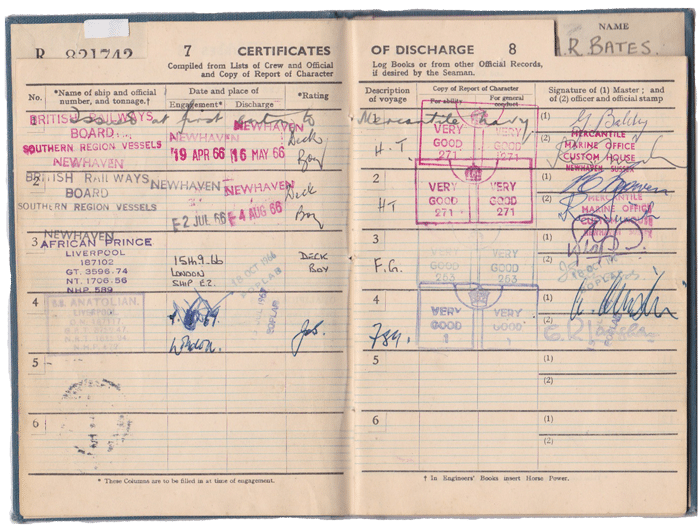 R 821742
7 CERTIFICATES
Compiled from Lists of Crew and Official
and Copy of Report of Character
No.
*Name of ship and official number, and tonnage.†
Date and place of
Engagement*
Discharge
*Rating
1
at first
BRITISH RAILWAYS
BOARD
SOUTHERN REGION VESSELS
NEWHAVEN
NEWHAVEN
NEWHAVEN
19 APR 66
16 MAY 66
Deck
Boy
2
BRITISH RAILWAYS
BOARD
SOUTHERN REGION VESSELS
NEWHAVEN
NEWHAVEN
NEWHAVEN
2 JUL 66
4 AUG 66
Deck
Boy
3
AFRICAN PRINCE
LIVERPOOL
187102
GT. 3596.74
NT. 1706.56
NHP. 589
15th.9.66
LONDON
SHIP EZ.
18 OCT 1966
POPLAR
DECK
BOY
4
S.S. ANATOLIAN.
LIVERPOOL
London.
POPLAR
5
6
* These Columns are to be filled in at time of engagement.
OF DISCHARGE 8
Log Books or from other Official Records,
if desired by the Seaman.
NAME
R. BATES.
Description of voyage
Copy of Report of Character
For ability
For general conduct
Signature of (1) Master; and of (2) officer and official stamp
1
Mercantile Navy
H.T.
VERY GOOD 271
VERY GOOD 271
(1)
(2)
MERCANTILE
MARINE OFFICE
CUSTOM HOUSE
NEWHAVEN SUSSEX
2
HT
VERY GOOD 271
VERY GOOD 271
(1)
(2)
MERCANTILE
MARINE OFFICE
3
F.G.
VERY GOOD 253
VERY GOOD 253
(1)
(2)
18 OCT
POPLAR
4
VERY GOOD 1
VERY GOOD 1
(1)
(2)
5
(1)
(2)
6
(1)
(2)
† In Engineers' Books insert Horse Power.